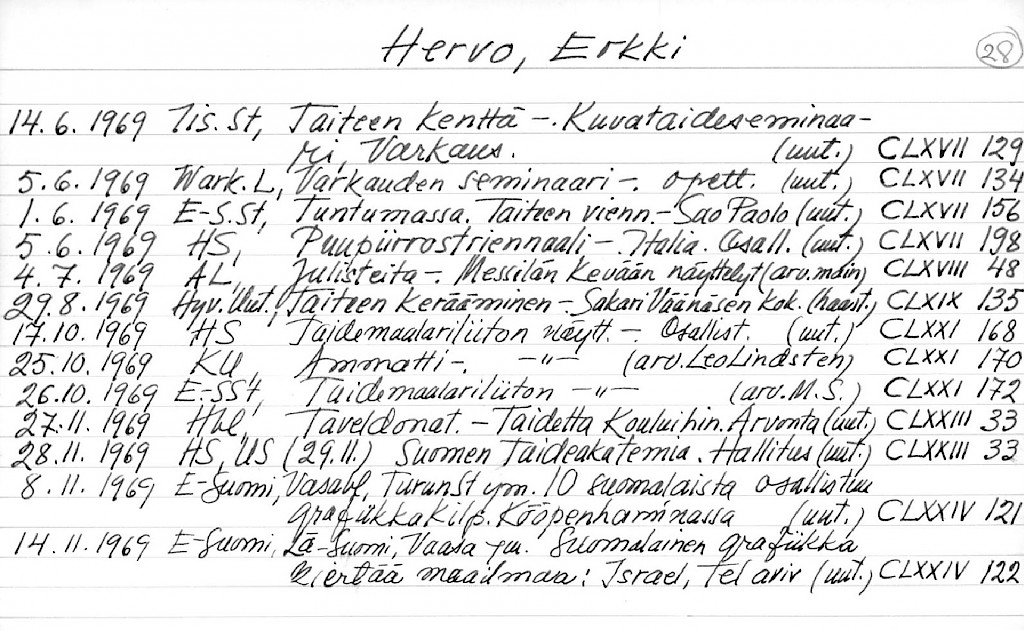 Hervo, Erkki
28
14.6.1969 Tis.St, Taiteen kenttä -. Kuvataideseminaa-
ri, Varkaus. (uut.) CLXVII 129
5.6.1969 Wark.L, Varkauden seminaari -. opett. (uut.) CLXVII 134
1.6.1969 E-S.St, Tuntumassa. Taiteen vienn.- Sao Paolo (uut.) CLXVII 156
5.6.1969 HS, Puupiirrostriennaali - Italia. Osall. (uut.) CLXVII 198
4.7.1969 AL, Julisteita -. Messilän kevään näyttelyt (arv. main) CLXVIII 48
29.8.1969 Hyv. Uut., Taiteen kerääminen - Sakari Väänäsen kok. (haast.) CLXIX 135
17.10.1969 HS Taidemaalariliiton näytt. -. Osallist. (uut.) CLXXI 168
25.10.1969 KU, Ammatti -. -"- (arv. Leo Lindsten) CLXXI 170
26.10.1969 E-SSt, Taidemaalariliiton -"- (arv. M.S.) CLXXI 172
27.11.1969 Hbl, Taveldonat. - Taidetta Kouluihin. Arvonta (uut.) CLXXIII 33
28.11.1969 HS, US (29.11.) Suomen Taideakatemia. Hallitus (uut.) CLXXIII 33
8.11.1969 E-Suomi, Vasabl, TurunSt ym. 10 suomalaista osallistuu
grafiikka kilp. Kööpenhaminassa (uut.) CLXXIV 121
14.11.1969 E-Suomi, Lä-Suomi, Vaasa ym. Suomalainen grafiikka
kiertää maailmaa: Israel, Tel aviv (uut.) CLXXIV 122